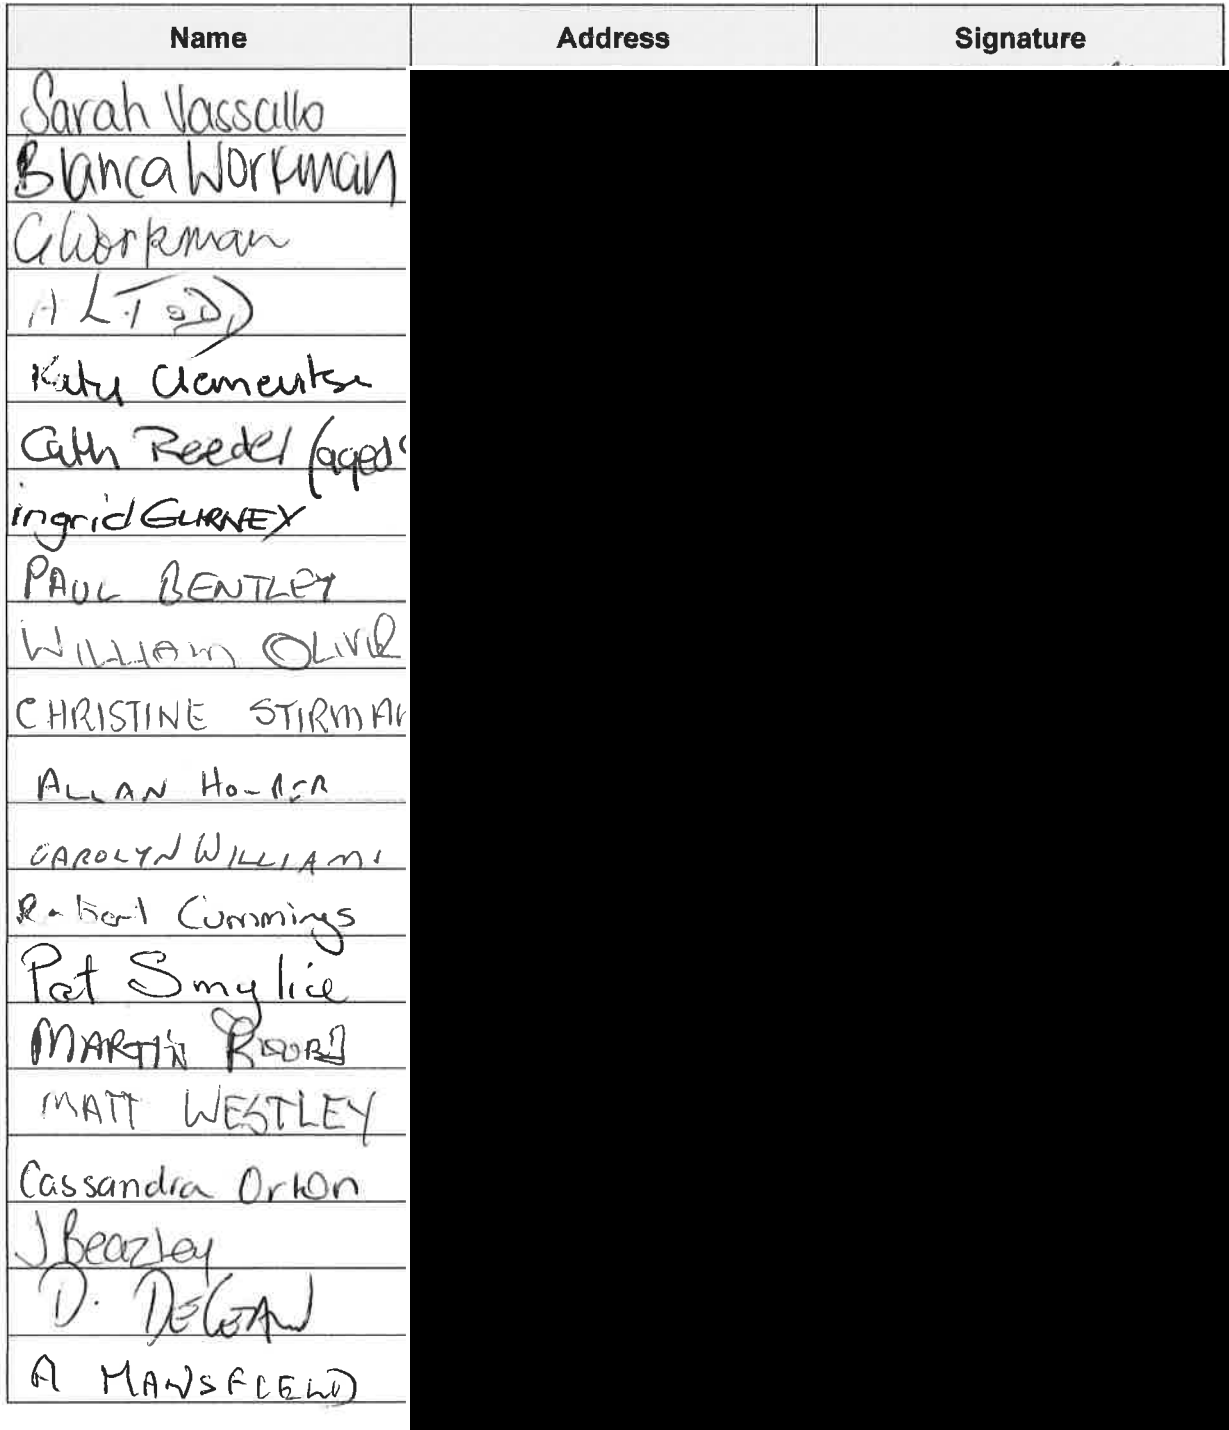 Name Address Signature
Sarah Vassallo
Bianca Workman
G Workman
A L TODD
Katy Clements
Cath Reedel (aged
ingrid GURNEY
PAUL BENTLEY
WILLIAM OLIVER
CHRISTINE STIRMAN
ALLAN
CAROLYN WILLIAMS
Robert Cummings
Pat Smylie
MARTIN
MATT WESTLEY
Cassandra Orton
J Beazley
D. DEGEAN
A MANSFIELD